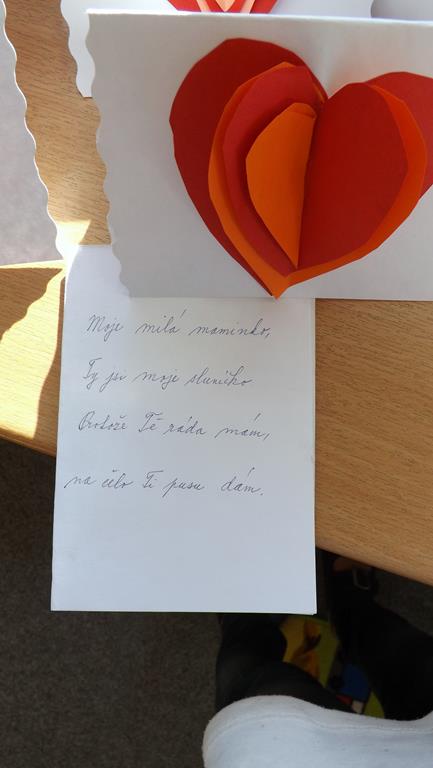 Moje milá maminko,
Ty jsi moje sluníčko
Protože Tě ráda mám,
na čelo Ti pusu dám.